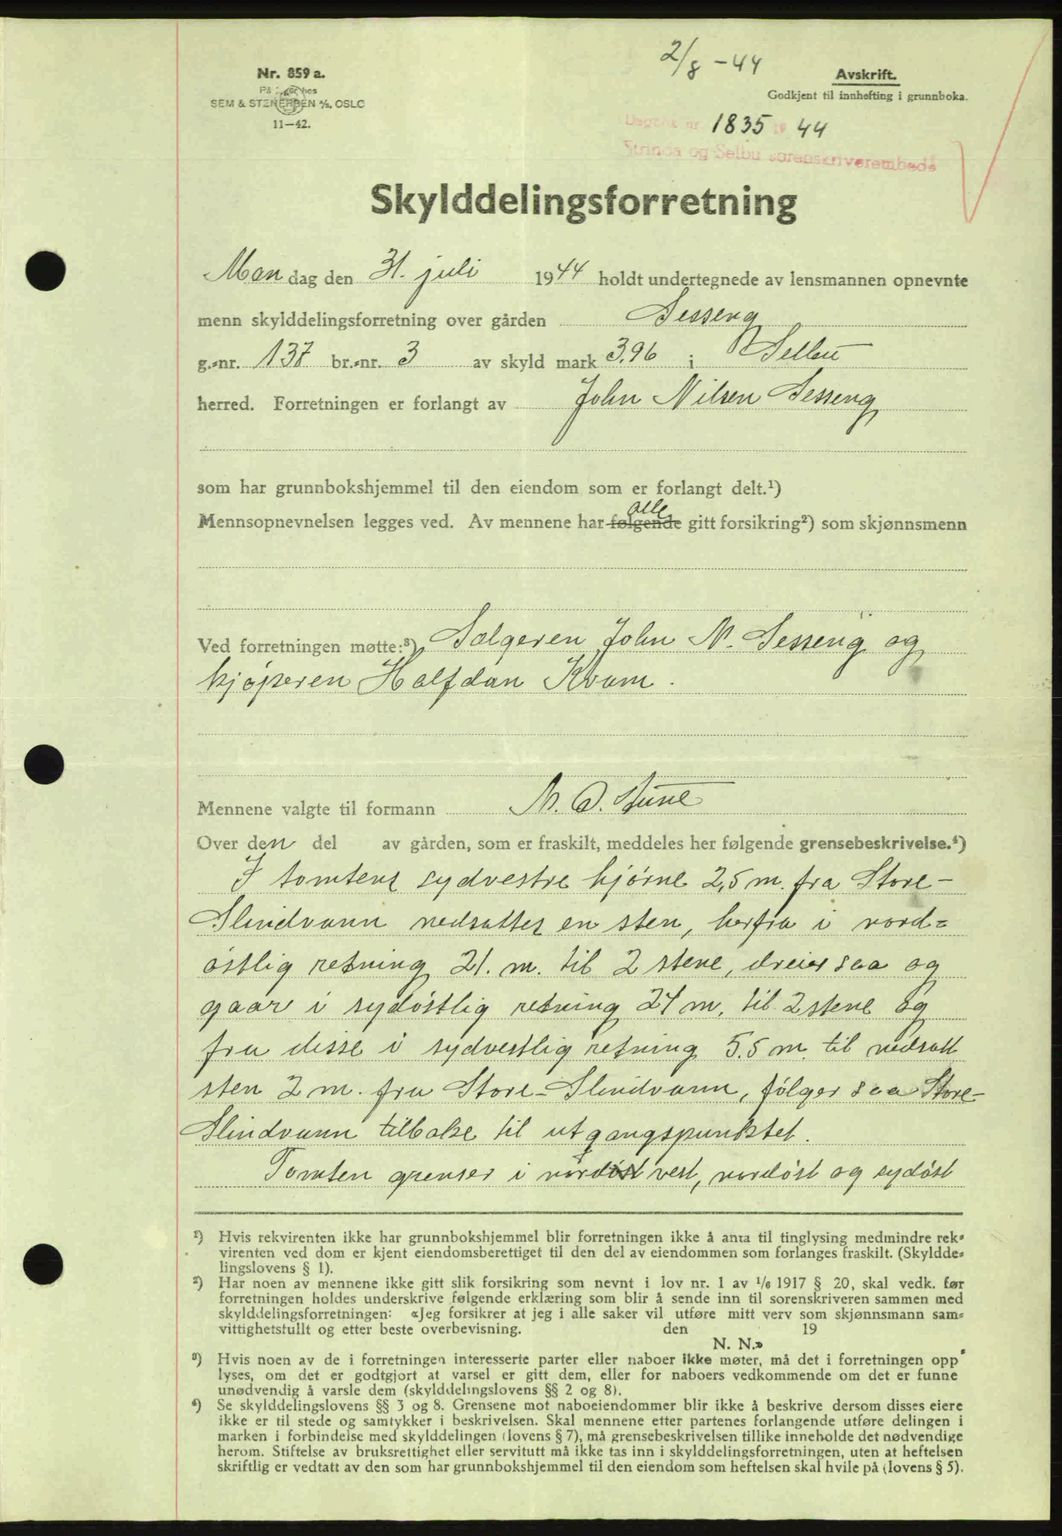 2/8 -44
Nr. 859 a.
SEM & STENERSEN A/S, OSLO
11-42.
Avskrift.
Godkjent til innhefting i grunnboka.
Dagbok nr 1835 19 44
Strinda og Selbu sorenskriverembede
Skylddelingsforretning
Mandag den 31. juli 1944 holdt undertegnede av lensmannen opnevnte
menn skylddelingsforretning over gården Sesseng
g.-nr. 137 br.-nr. 3 av skyld mark 3.96 i Selbu
herred. Forretningen er forlangt av John Nilsen Sesseng
som har grunnbokshjemmel til den eiendom som er forlangt delt.¹)
alle
Mennsopnevnelsen legges ved. Av mennene har følgende gitt forsikring²) som skjønnsmenn
Ved forretningen møtte:³) Sælgeren John N. Sesseng og
kjøperen Halfdan Kvam.
Mennene valgte til formann N. O. Stene
Over den del av gården, som er fraskilt, meddeles her følgende grensebeskrivelse.⁴)
I tomtens sydvestre hjørne 2,5 m. fra Store-
Slindvann nedsattes en sten, herfra i nord-
østlig retning 21. m. til 2 stene, dreier saa og
gaar i sydøstlig retning 24 m, til 2 stene og
fra disse i sydvestlig retning 5.5 m. til nedsatt
sten 2 m. fra Store-Slindvann, følger saa Store-
Slindvann tilbake til utgangspunktet.
Tomten grenser i nordøst vest, nordøst og sydøst
¹) Hvis rekvirenten ikke har grunnbokshjemmel blir forretningen ikke å anta til tinglysing medmindre rek-
virenten ved dom er kjent eiendomsberettiget til den del av eiendommen som forlanges fraskilt. (Skyldde-
lingslovens § 1).
²) Har noen av mennene ikke gitt slik forsikring som nevnt i lov nr. 1 av 1/6 1917 § 20, skal vedk. før
forretningen holdes underskrive følgende erklæring som blir å sende inn til sorenskriveren sammen med
skylddelingsforretningen: «Jeg forsikrer at jeg i alle saker vil utføre mitt verv som skjønnsmann sam-
vittighetsfullt og etter beste overbevisning. den 19
N. N.»
³) Hvis noen av de i forretningen interesserte parter eller naboer ikke møter, må det i forretningen opp
lyses, om det er godtgjort at varsel er gitt dem, eller for naboers vedkommende om det er funne
unødvendig å varsle dem (skylddelingslovens §§ 2 og 8).
⁴) Se skylddelingslovens §§ 3 og 8. Grensene mot naboeiendommer blir ikke å beskrive dersom disses eiere
ikke er til stede og samtykker i beskrivelsen. Skal mennene etter partenes forlangende utføre delingen i
marken i forbindelse med skylddelingen (lovens § 7), må grensebeskrivelsen tillike inneholde det nødvendige
herom. Stiftelse av bruksrettighet eller servitutt må ikke tas inn i skylddelingsforretningen, uten at heftelsen
skriftlig er vedtatt av den som har grunnbokshjemmel til den eiendom som heftelsen skal hvile på (lovens § 5).